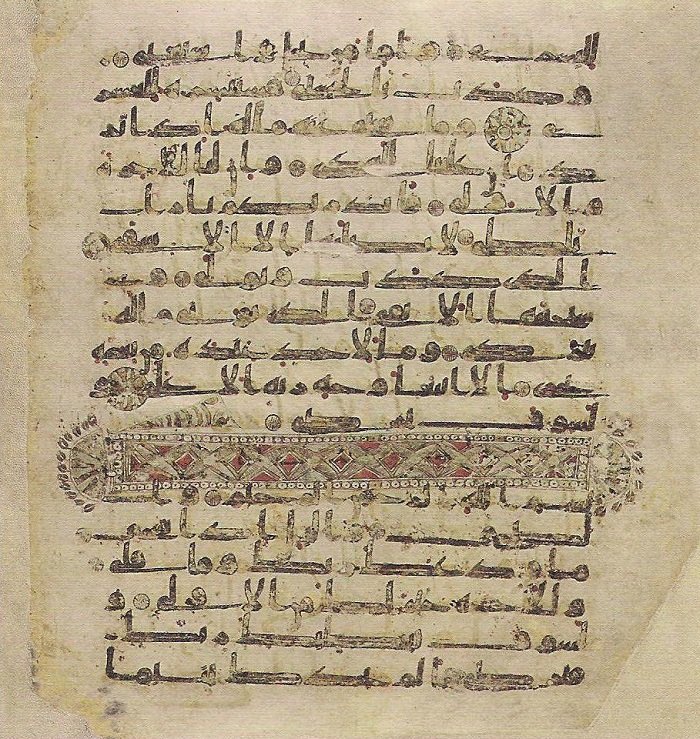 لليسرى واما من بخل واستغنى
وكذب بالحسنى فسنيسره للعسر
ى وما يغنى عنه ماله اذا تر
دى ان علينا للهدى وان لنا للاخرة
والاولى فانذرتكم نارا
تلظى لا يصلها الا الاشقى
الذى كذب وتولى و
سيجنبها الاتقى الذى يوتى ماله
يتزكى وما لاحد عنده من نعمة
تجزى الا ابتغا وجه ربه الاعلى و
لسوف يرضى
بسم الله الرحمن الرحيم وا
لضحى واليل اذا سجى
ما ودعك ربك وما قلى
وللاخرة خير لك من الاولى و
لسوف يعطيك ربك
فترضى الم يجدك يتيما